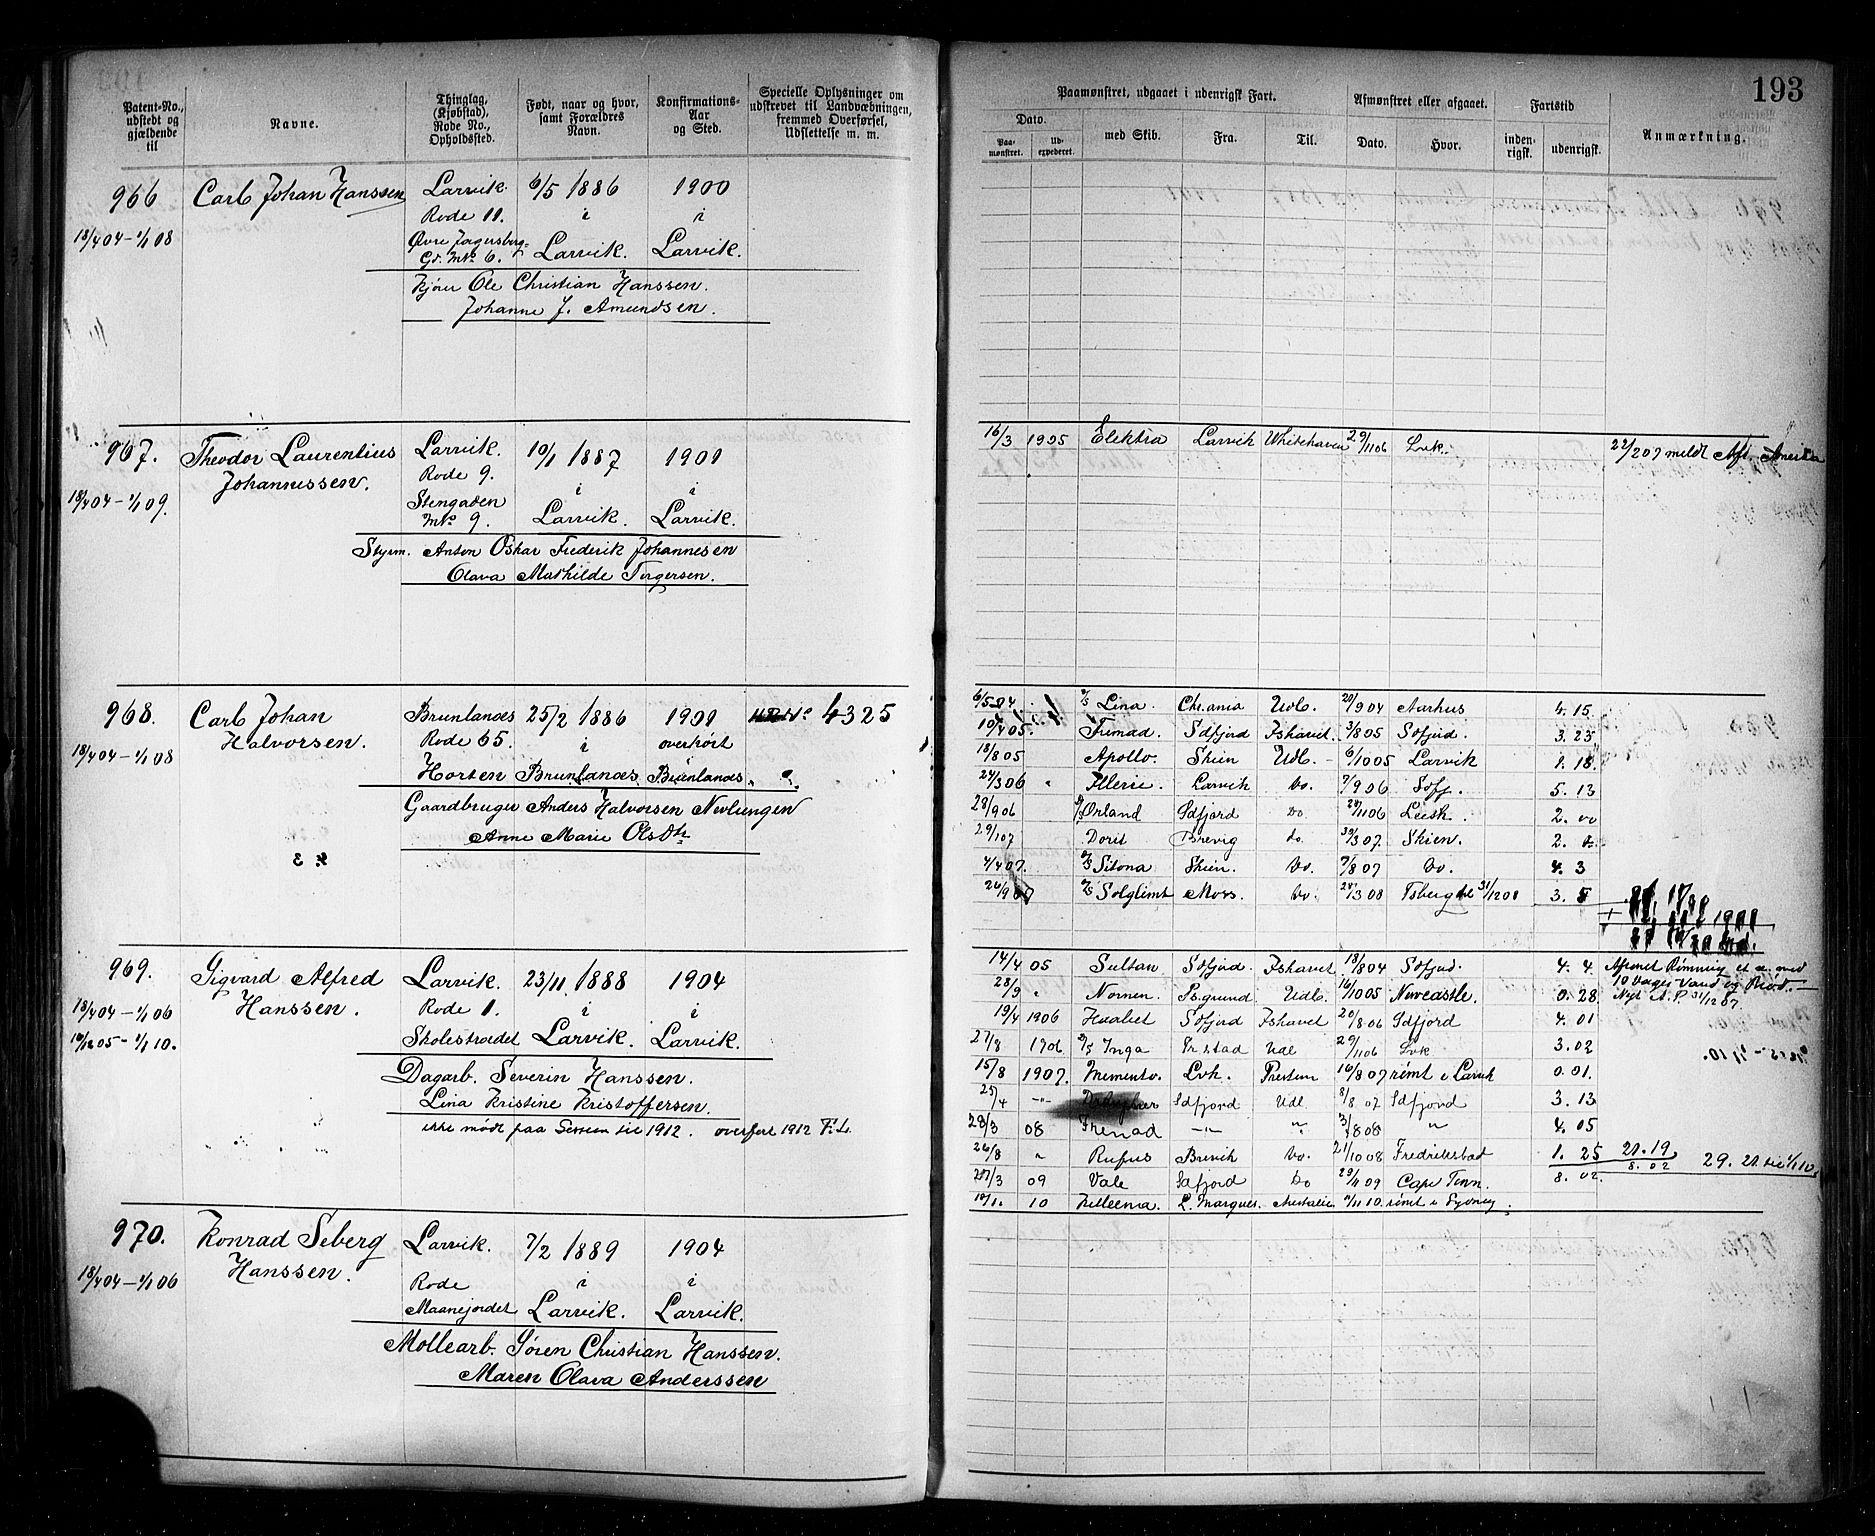 193
Patent-No., udstedt og gjældende til
Navne.
Thinglag, (Kjøbstad), Rode No., Opholdssted.
Født, naar og hvor, samt Forældres Navn.
Konfirmations-Aar og Sted.
Specielle Oplysninger om udskrevet til Landvæbningen, fremmed Overførsel, Udslettelse m. m.
Paamønstret, udgaaet i udenrigsk Fart.
Afmønstret eller afgaaet.
Fartstid
Anmærkning.
Dato.
Paa-mønstret.
Ud-expederet.
med Skib.
Fra.
Til.
Dato.
Hvor.
inden-rigsk.
udenrigsk.
966 Carl Johan Hanssen Larvik. 6/5 1886 1900
Rode 11. i i
18/4 04 – 1/1 08 Øvre Jegersberg- Larvik. Larvik.
Gd. No 6.
Kjører Ole Christian Hanssen.
Johanne J. Amundsen.
967. Theodor Laurentius Larvik. 10/1 1887 1901
Johannessen. Rode 9. i i
18/4 04 – 1/1 09. Stengaden Larvik. Larvik.
No 9.
Styrm. Anton Oskar Frederik Johannesen
Olava Mathilde Torgersen.
16/3 1905 Elektra Larvik Whitehaven 29/11 06 Lvk. 22/2 07 meldt Afr. Amerika
968. Carl Johan Brunlanes 25/2 1886 1901 4325
Halvorsen. Rode 65. i overhørt
18/4 04 – 1/1 08 Horten Brunlanes Brunlanes
Gaardbruger Anders Halvorsen Nevlungen
Anne Marie Olsdtr
6/5 04 Lina. Chr.ania Udl. 20/9 04 Aarhus 4. 15
10/4 05. Fremad. Sdfjord Ishavet. 3/8 05 Sdfjord. 3. 23
18/8 05 Apollo. Skien Udl. 6/10 05 Larvik 1. 18
24/3 06 Illeri. Larvik do. 7/9 06 Sdfj. 5. 13
28/9 06 Ørland Sdfjord do 28/11 06 Leith. 2. 00
29/1 07 Dorit Brevig do. 30/3 07 Skien. 2.
4/4 07. Sitona Skien. do. 7/8 07 do. 4. 3
26/9 07 Solglimt Moss do. 28/3 08 Tsberg 31/12 08 3. 5
969. Sigvard Alfred Larvik. 23/11 1888 1904
Hanssen. Rode 1. i i
18/4 04 – 1/1 06 Skolestrædet Larvik. Larvik.
10/12 05 – 1/1 10.
Dagarb. Severin Hanssen.
Lina Kristine Kristoffersen.
ikke mødt paa Session til 1912. overført 1912
14/4 05 Sultan Sdfjord. Ishavet 18/8 04 Sdfjord. 4. 4. Afsonet Rømning med
28/9 " Nornen. Psgrund Udl. 16/10 05 Newcastle. 0. 28 10 Dages Vand og Brød.
19/4 1906 Haabet Sdfjord Ishavet 20/8 06 Sdfjord 4. 01
27/8 1906 Inga Frstad Udl 29/11 06 Lvk 3. 02
15/8 1907. Memento. Lvk. Preston 16/8 07 rømt i Larvik 0. 01.
25/4 –"– Sdfjord Udl 8/8 07 Sdfjord 3. 13
28/3 08 Fremad –"– " 3/8 08 " 4. 05
26/8 " Rufus Brevik do. 21/10 08 Fredrikstad 1. 25 21. 19
8. 02 29. 21 til 1/1 10
27/3 09 Vale Sdfjord do 29/11 09 Cape Town. 8. 02
10/1. 10 L. Marques. Australien 2/11 10. rømt i Sydney.
970. Konrad Seberg Larvik. 7/2 1889 1904
Hanssen. Rode i i
18/4 04 – 1/1 06 Maanejordet Larvik. Larvik.
Møllearb. Søren Christian Hanssen.
Maren Olava Anderssen